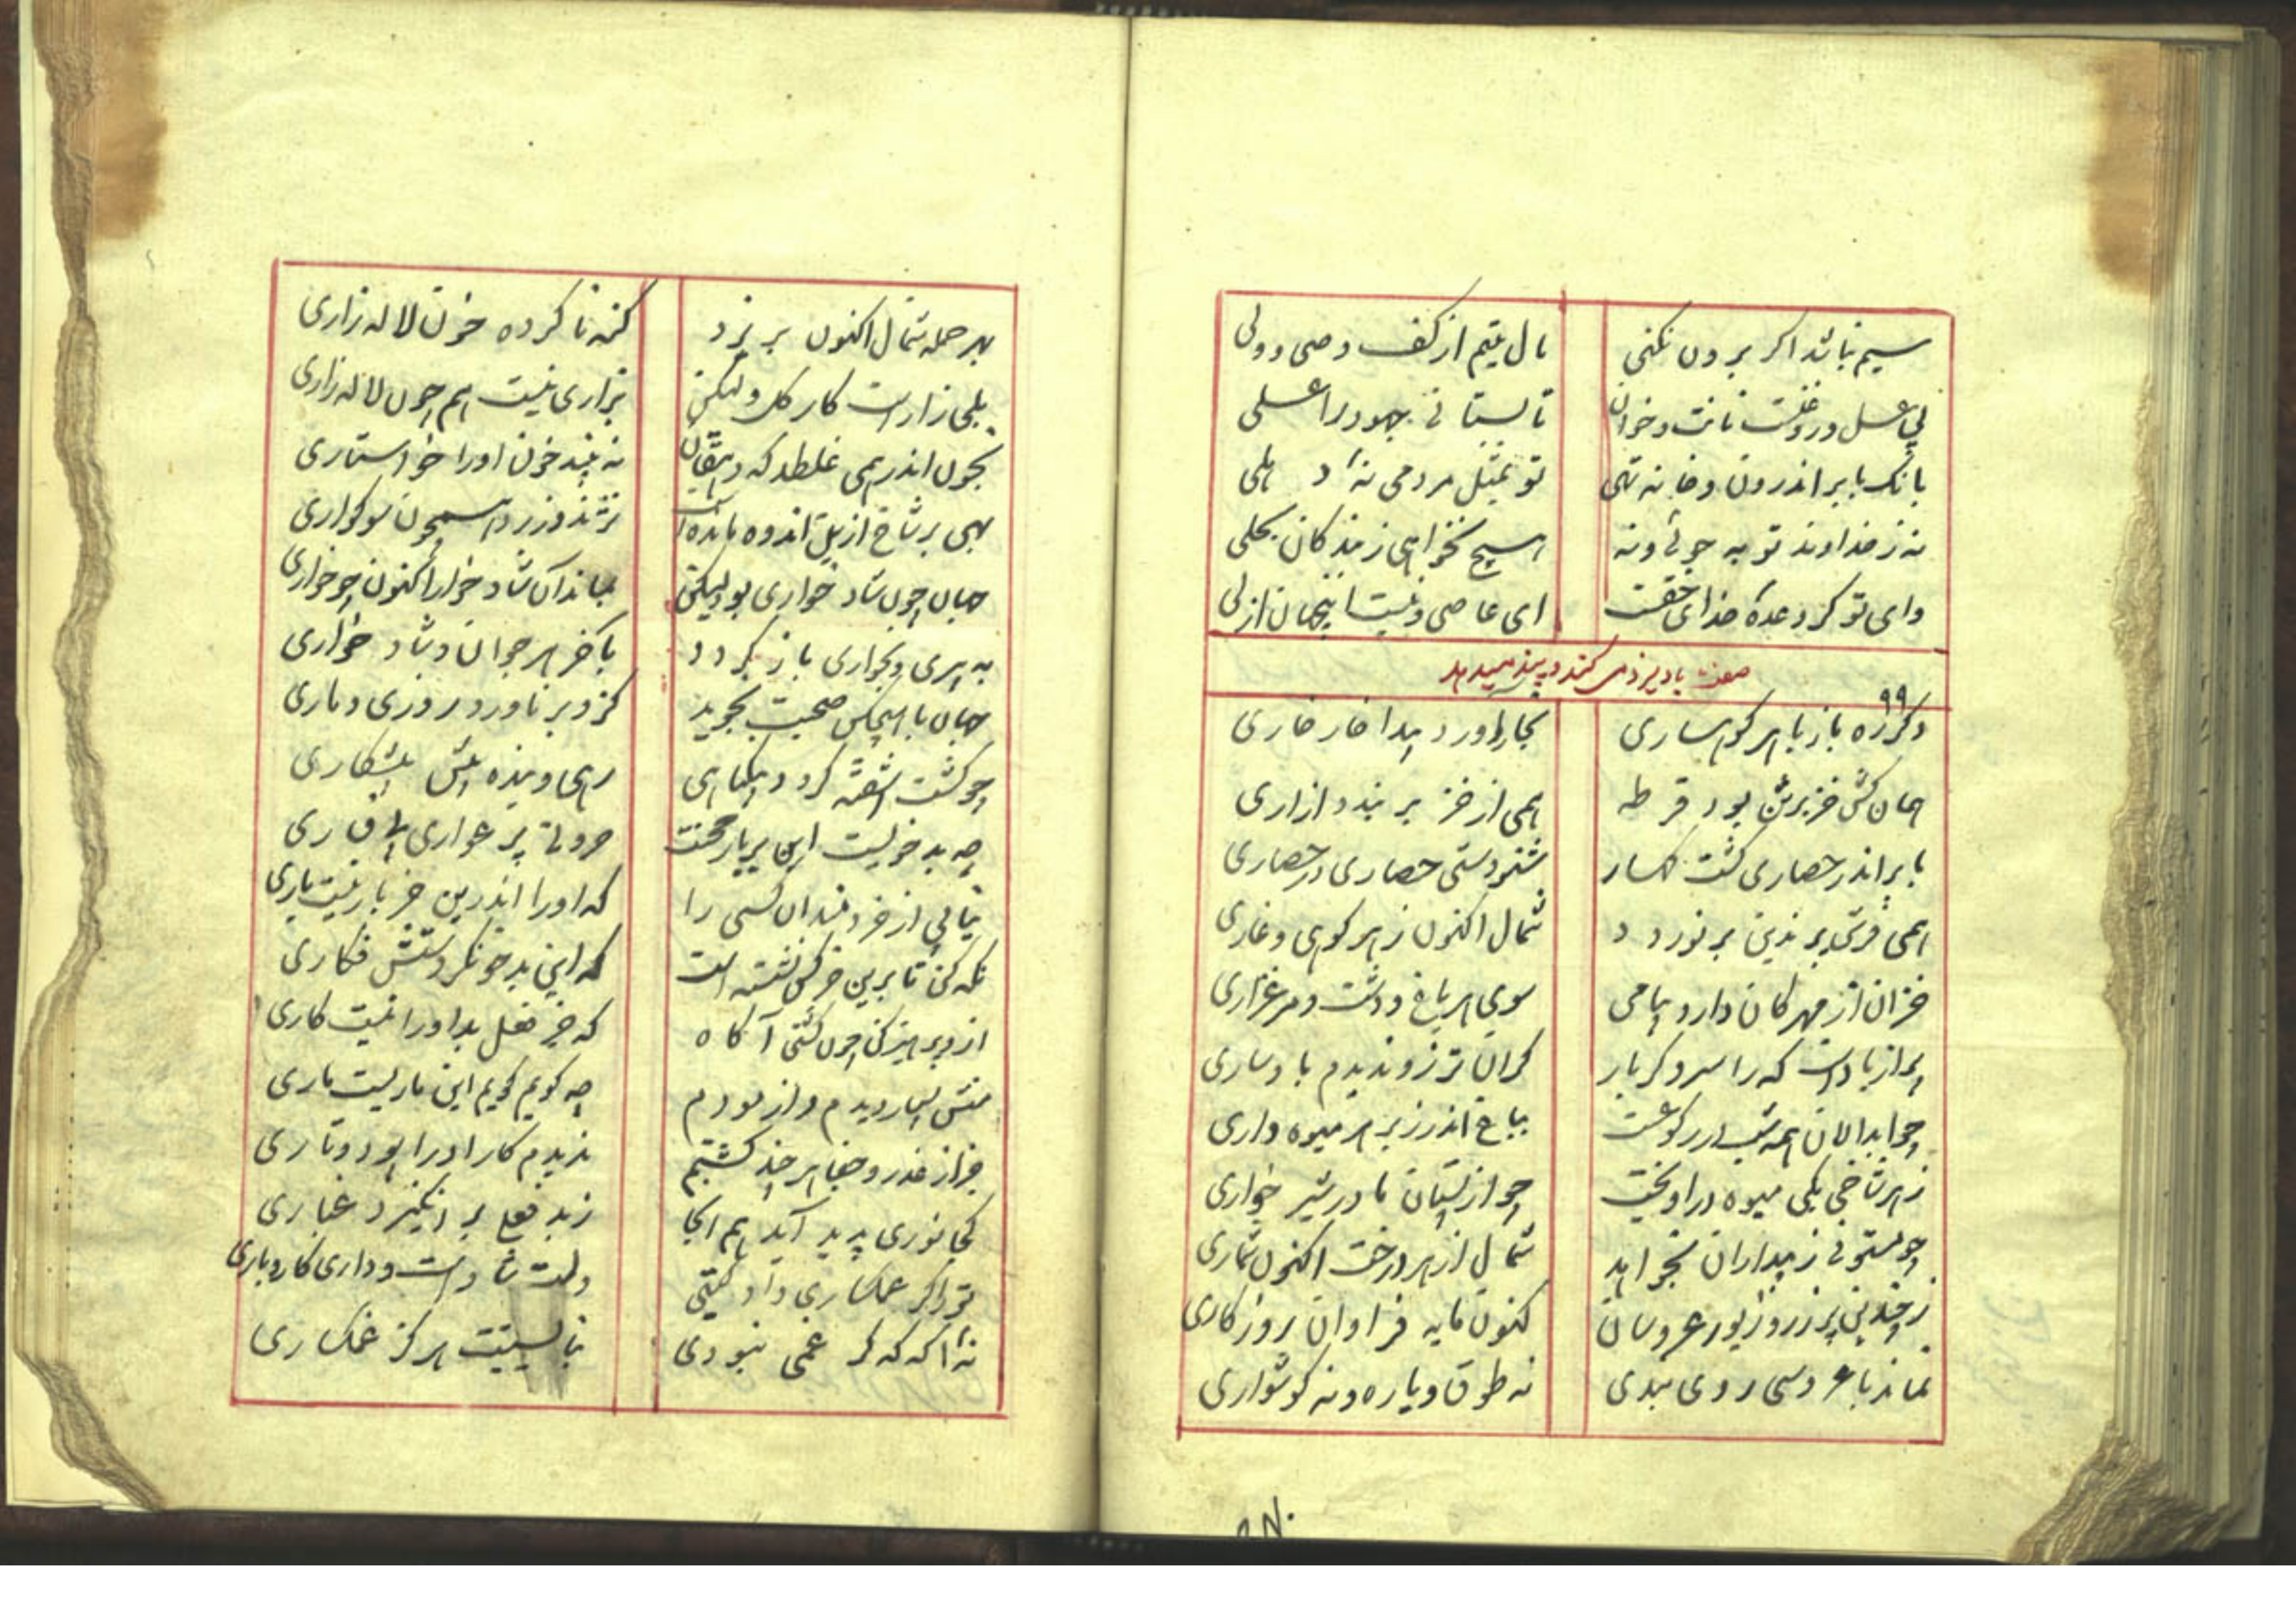 سیم نباشد اکر برون نکنی مال یتیم از کف وصی و ولی
بی عسل و روغنست نانت و خوان تا لبستانی جهود را عسلی
بانک بابر اندرون و خانه تهی تو بمثل مردمی نهٔ د هلی
نه ز خداوند تو به جوئی و نه هیچ نخواهی ز بندکان بحلی
وای تو کز وعدهٔ خدای حقت ای عاصی و نیست اینجهان ازلی
صفت باد
۹۹
دکرره باز با هر کوهساری بخار اورد پیدا خار خاری
همان کش خز برش بود قرطه همی از خز بر بندد ازاری
بابر اندر حصاری کشت کهسار شنودستی حصاری در حصاری
همی فرش پرندین بر نوردد شمال اکنون ز هر کوهی و غاری
خزان از مهرکان دارد پیامی سوی هر باغ و دشت و مرغزاری
ابر از بادست که را سر و کر بار کران تر زو ندیدم باد ساری
چو ابدالان همه شب در رکوعست بباغ اندر ز بر هر میوه داری
ز هر شاخی یکی میوه دراویخت چو از پستان مادر شیر خواری
چو مستوفی ز بیداران نخواهد شمال از هر درخت اکنون شماری
ز چندین پر زر و زیور عروسان کنون مایه فراوان روزکاری
نماند با عروسی روی بندی نه طوق و یاره و نه کوشواری
بهر حمله شمال اکنون بریزد کنه ناکرده خون لاله زاری
بلی زارست کار کل ولیکن بزاری نیست هم چون لاله زاری
بخون اندر همی غلطد که دهقان نه بیند خون او را خواستاری
بهی بر شاخ از بل اندوه مانده است نژند و زرد همچون سوکواری
جهان چون شاد خواری بود لیکن نماند آن شاد خوار اکنون چو خواری
به پیری و بخواری باز کردد باخر هر جوان و شاد خواری
جهان با هیچکس صحبت نجوید کزو بر ناورد روزی دماری
چو کشت اشفته کردد پیکاهی رهی و بنده پیش پیشکاری
چه بد خوئیست این پر یار محنت عروتی پر عواری بی وقاری
نیابی از خردمندان کسی را که او را اندرین خر بار نیست باری
نکه کن تا برین خر کس نشسته است که این بدخو نکردستش فکاری
ازو پرهیز کن چون کشتی آکاه که جز فعل بد او را نیست کاری
منش بسیار دیدم و ازمودم چه کویم کویم این ماریست ماری
جز از غدر و جفا هر چند کشتیم ندیدم کار او را پود و تاری
کجا نوری پدید آید هم انجا ز بد فعلی بر انکیزد غباری
تو را کر عمکساری داد کیتی دلت شادست و داری کاروباری
نه‌اکه که کر غمی نبودی نبایستیت هرکز غمکساری